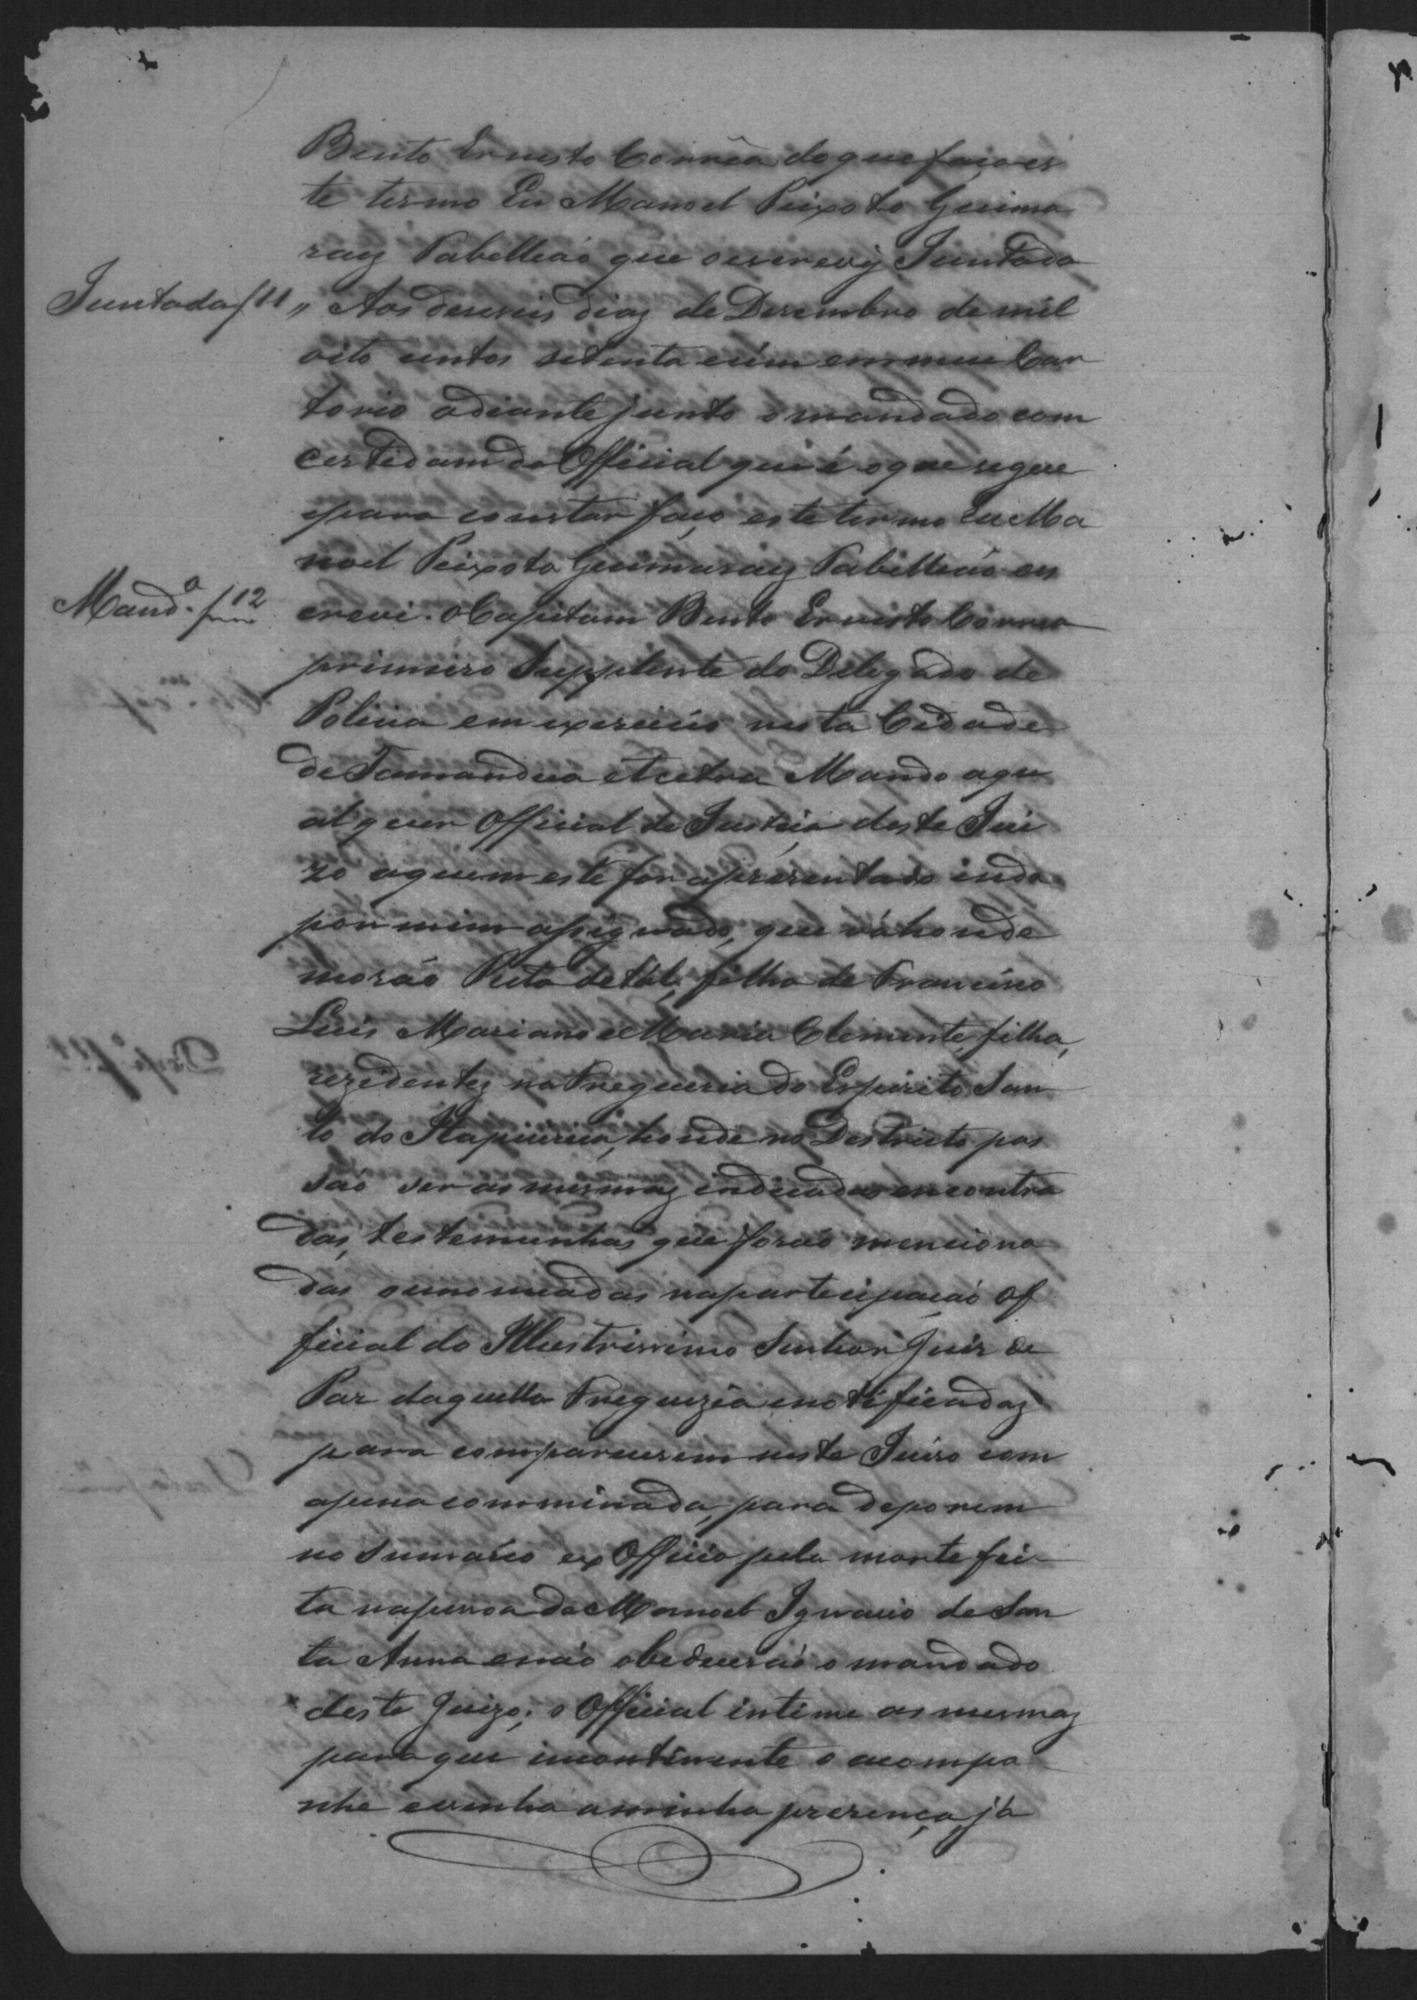 Bento Ernesto Corrêa do que faço es
te termo Eu Manoel Peixoto Guima
raiz Tabelleáo que oescrevy Juntada
Juntada f 11 " Aos deseseis diaz de Desembro de mil
oito centos setenta eúm em meu Car
torio adiante junto o mandado com
certidam do Official que é oque segue
para constar faço este termo Eu Ma
noel Peixoto Guimaraiz Tabelleáo es
Mand.o f 12 crevi. O Capitam Bento Ernesto Correa
primeiro Supplente do Delegado de
Policia em exercicio nesta Cidade
de Tamandua etcetra Mando aqu
alquer Official de Justiça deste Jui
zo aquem este for apresentado indo
por mim assignado, que vá honde
morão Rita de tal, filha de Francisco
Luis Mariano e Maria Clemente, filha,
rezidentez na Freguesia do Espirito San
to do Itapicirica, honde no Destricto pos
são ser as mesmaz indicadas encontra
das, testemunhas que foráo menciona
das ounomeadas naparticipaçáo of
ficial do Illustrissimo Senhor Juis de
Paz daquella Freguezia enotificadaz
para comparecerem neste Juiso com
apena comminada, para deporem
no sumario ex Officio pela morte fei
ta napessoa de Manoel Ignacio de San
ta Anna enáo obedeceráo o mandado
deste Juizo; o Official intime as mesmaz
para que incontinente o acompa
nhe evenha aminha presença, já